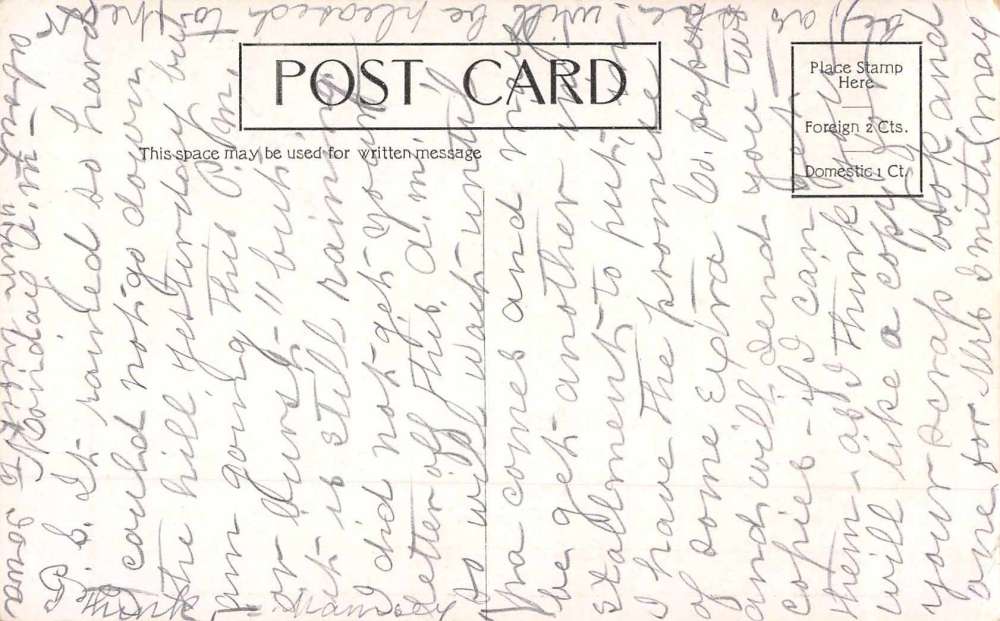 POST CARD
Place Stamp
Here
Foreign 2 Cts.
Domestic 1 Ct.
This space may be used for written message
Monday A.M.
P.S. It rained so hard
I could not go down
the hill yesterday but
am going this P.M.
or burst-11 but
it is still raining
I did not get your
letter off this A.M.
so will wait until
Ma comes and may
be get another in
stallment to put in
I have the promise
of some Extra Co. papers
and will send you two
copies - if I can get
them - as I think you
will like a copy for
your scrap book and
one for Mrs Smith (may
be) as she will be pleased to